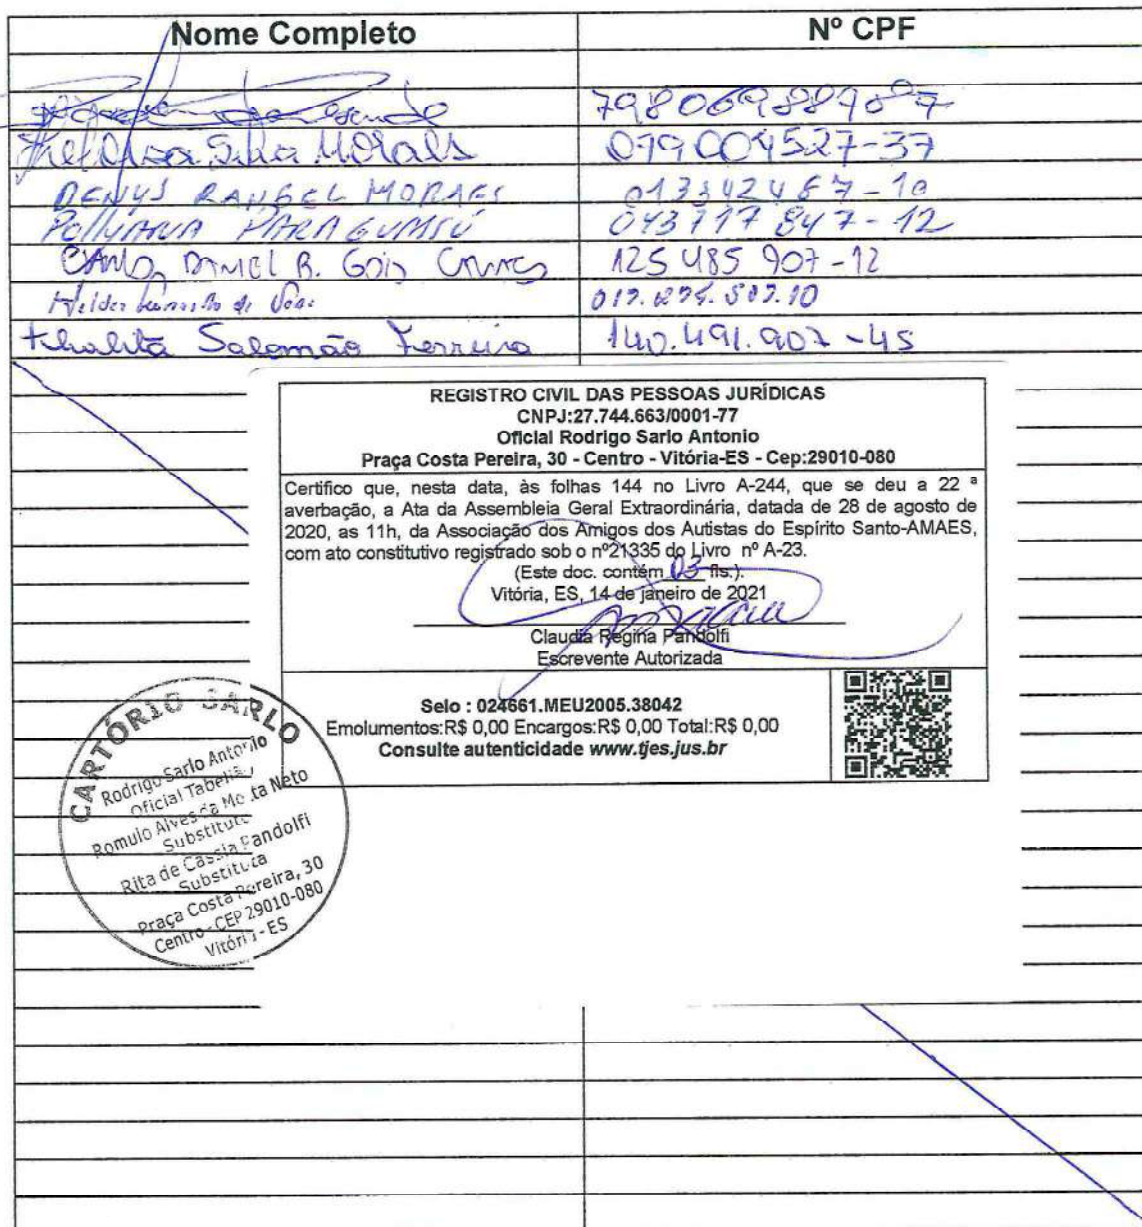 Nome Completo Nº CPF
79806988987
Silva Morais 079004527-37
DENYS RANGEL MORAES 013342467-10
POllYANNA PARAGUASSÚ 043717847-12
CARLOS DANIEL R. GOIS 125 485 907-12
Helder
Thalita Salomão Ferreira 140.491.907-45
REGISTRO CIVIL DAS PESSOAS JURÍDICAS
CNPJ:27.744.663/0001-77
Oficial Rodrigo Sarlo Antonio
Praça Costa Pereira, 30 - Centro - Vitória-ES - Cep:29010-080
Certifico que, nesta data, às folhas 144 no Livro A-244, que se deu a 22 ª
averbação, a Ata da Assembleia Geral Extraordinária, datada de 28 de agosto de
2020, as 11h, da Associação dos Amigos dos Autistas do Espírito Santo-AMAES,
com ato constitutivo registrado sob o nº21335 do Livro nº A-23.
(Este doc. contém 03 fls.).
Vitória, ES, 14 de janeiro de 2021
Claudia Regina Pandolfi
Escrevente Autorizada
Selo : 024661.MEU2005.38042
Emolumentos:R$ 0,00 Encargos:R$ 0,00 Total:R$ 0,00
Consulte autenticidade www.tjes.jus.br
CARTÓRIO SARLO
Rodrigo Sarlo Antonio
Oficial Tabelião
Romulo Alves da Motta Neto
Substituto
Rita de Cássia Pandolfi
Substituta
Praça Costa Pereira, 30
Centro - CEP 29010-080
Vitória - ES